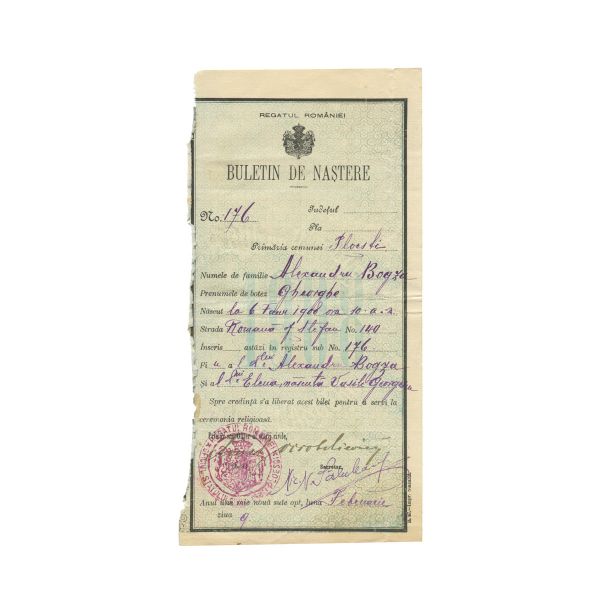 REGATUL ROMÂNIEI
BULETIN DE NAȘTERE
No. 176 Județul
Pla
Primăria comunei Ploesti
Numele de familie Alexandru Bogza
Prenumele de botez Gheorghe
Născut la 6 1908 10 a.
Strada Romană Stefan No. 140
Înscris astăzi în registru sub No. 176.
Fi u a l Alexandru Bogza
Și a l Elena, născuta Vasile
Spre credință s'a liberat acest bilet pentru a servi la
ceremonia religioasă.
Secretar,
Anul una mie nouă sute opt, luna Februarie
ziua 9